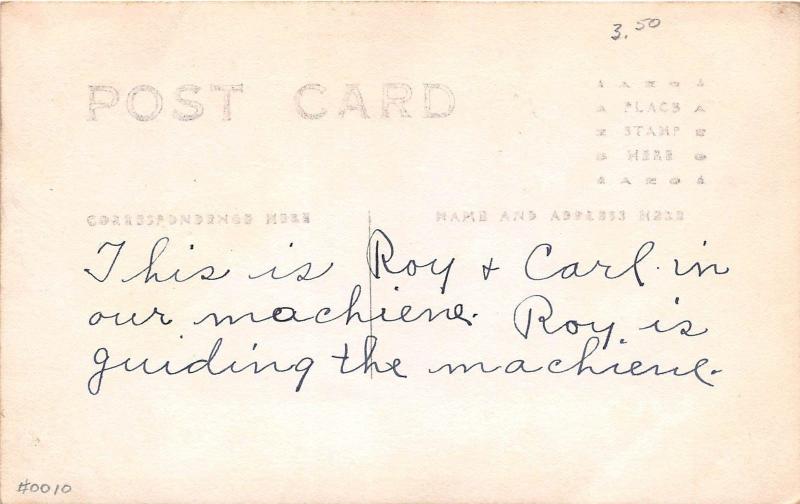 3.50
POST CARD
PLACE
STAMP
HERE
CORRESPONDENCE HERE
NAME AND ADDRESS HERE
This is Roy & Carl in
our machiene. Roy is
guiding the machiene.
#0010